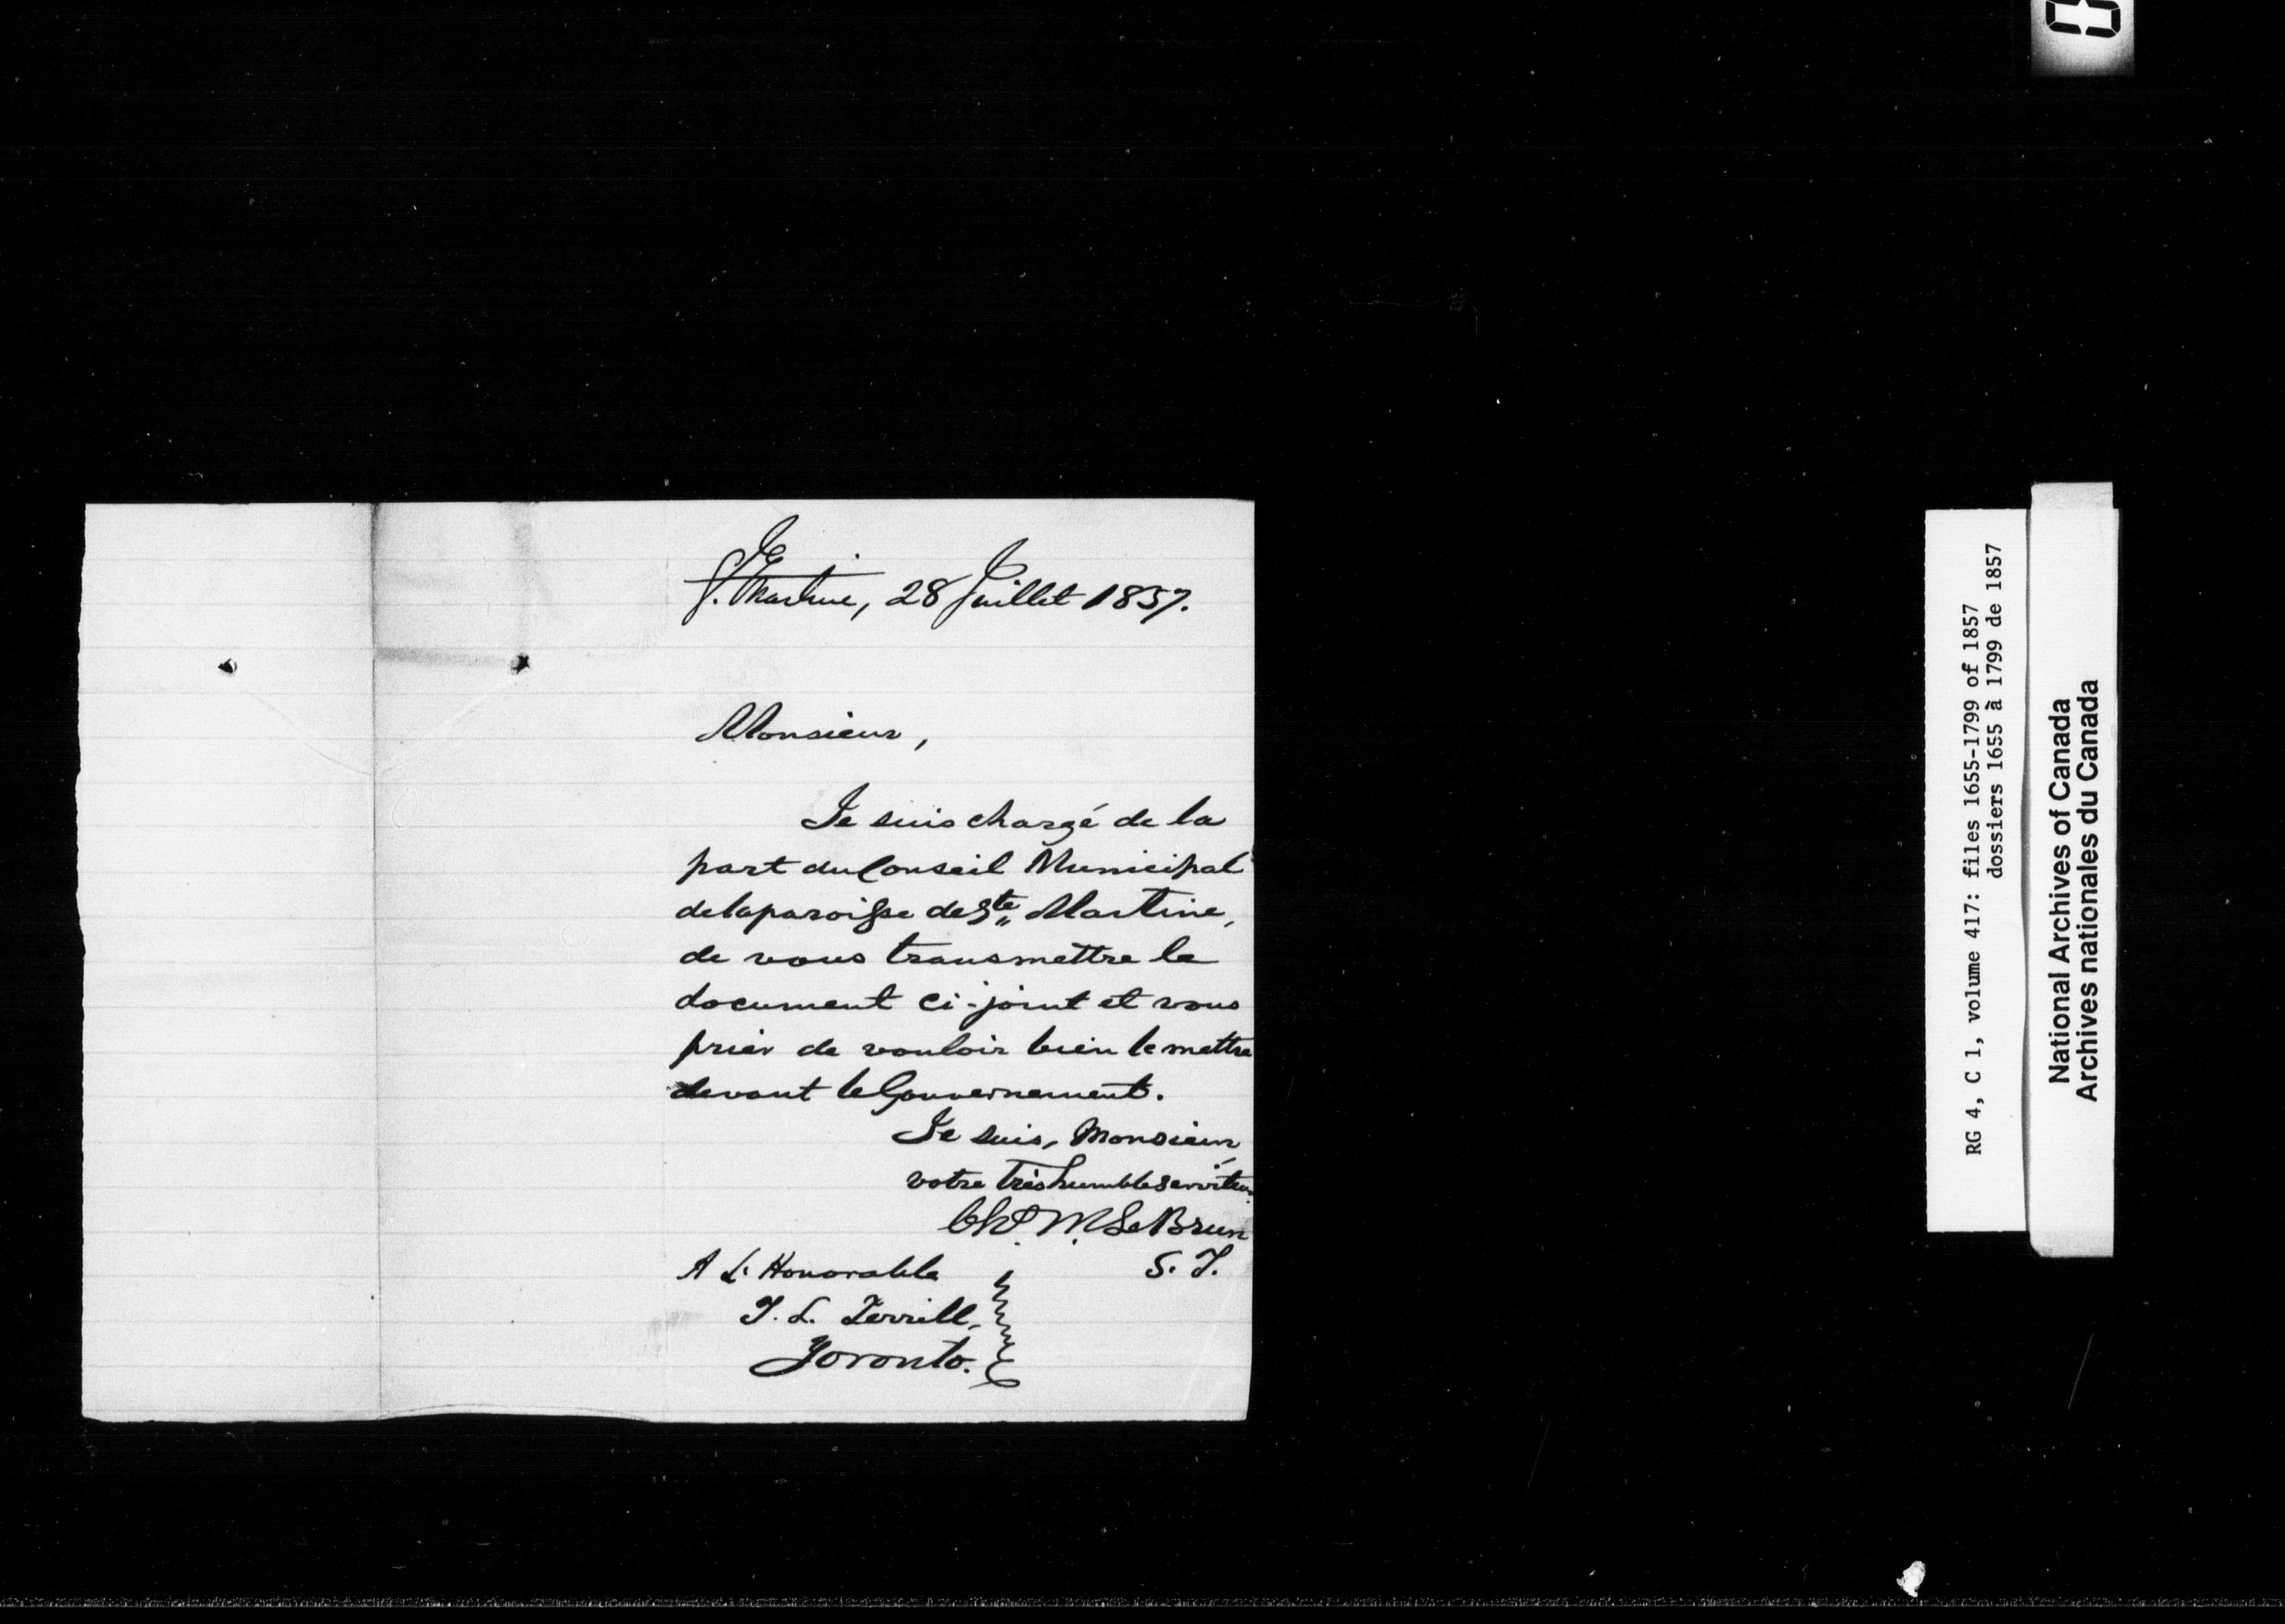 Ste. Martine, 28 Juillet 1857.
Monsieur,
Je suis chargé de la
part du Conseil Municipal
de la paroisse de Ste,, Martine,
de vous transmettre le
document ci-joint et vous
prier de vouloir bien le mettre
devant le Gouvernement.
Je suis, Monsieur,
votre très humble serviteur
Chs. M. LeBrun
S. T.
A L'Honorable
T. L. Terrill,
Toronto.
RG 4, C 1, volume 417: files 1655-1799 of 1857
dossiers 1655 à 1799 de 1857
National Archives of Canada
Archives nationales du Canada